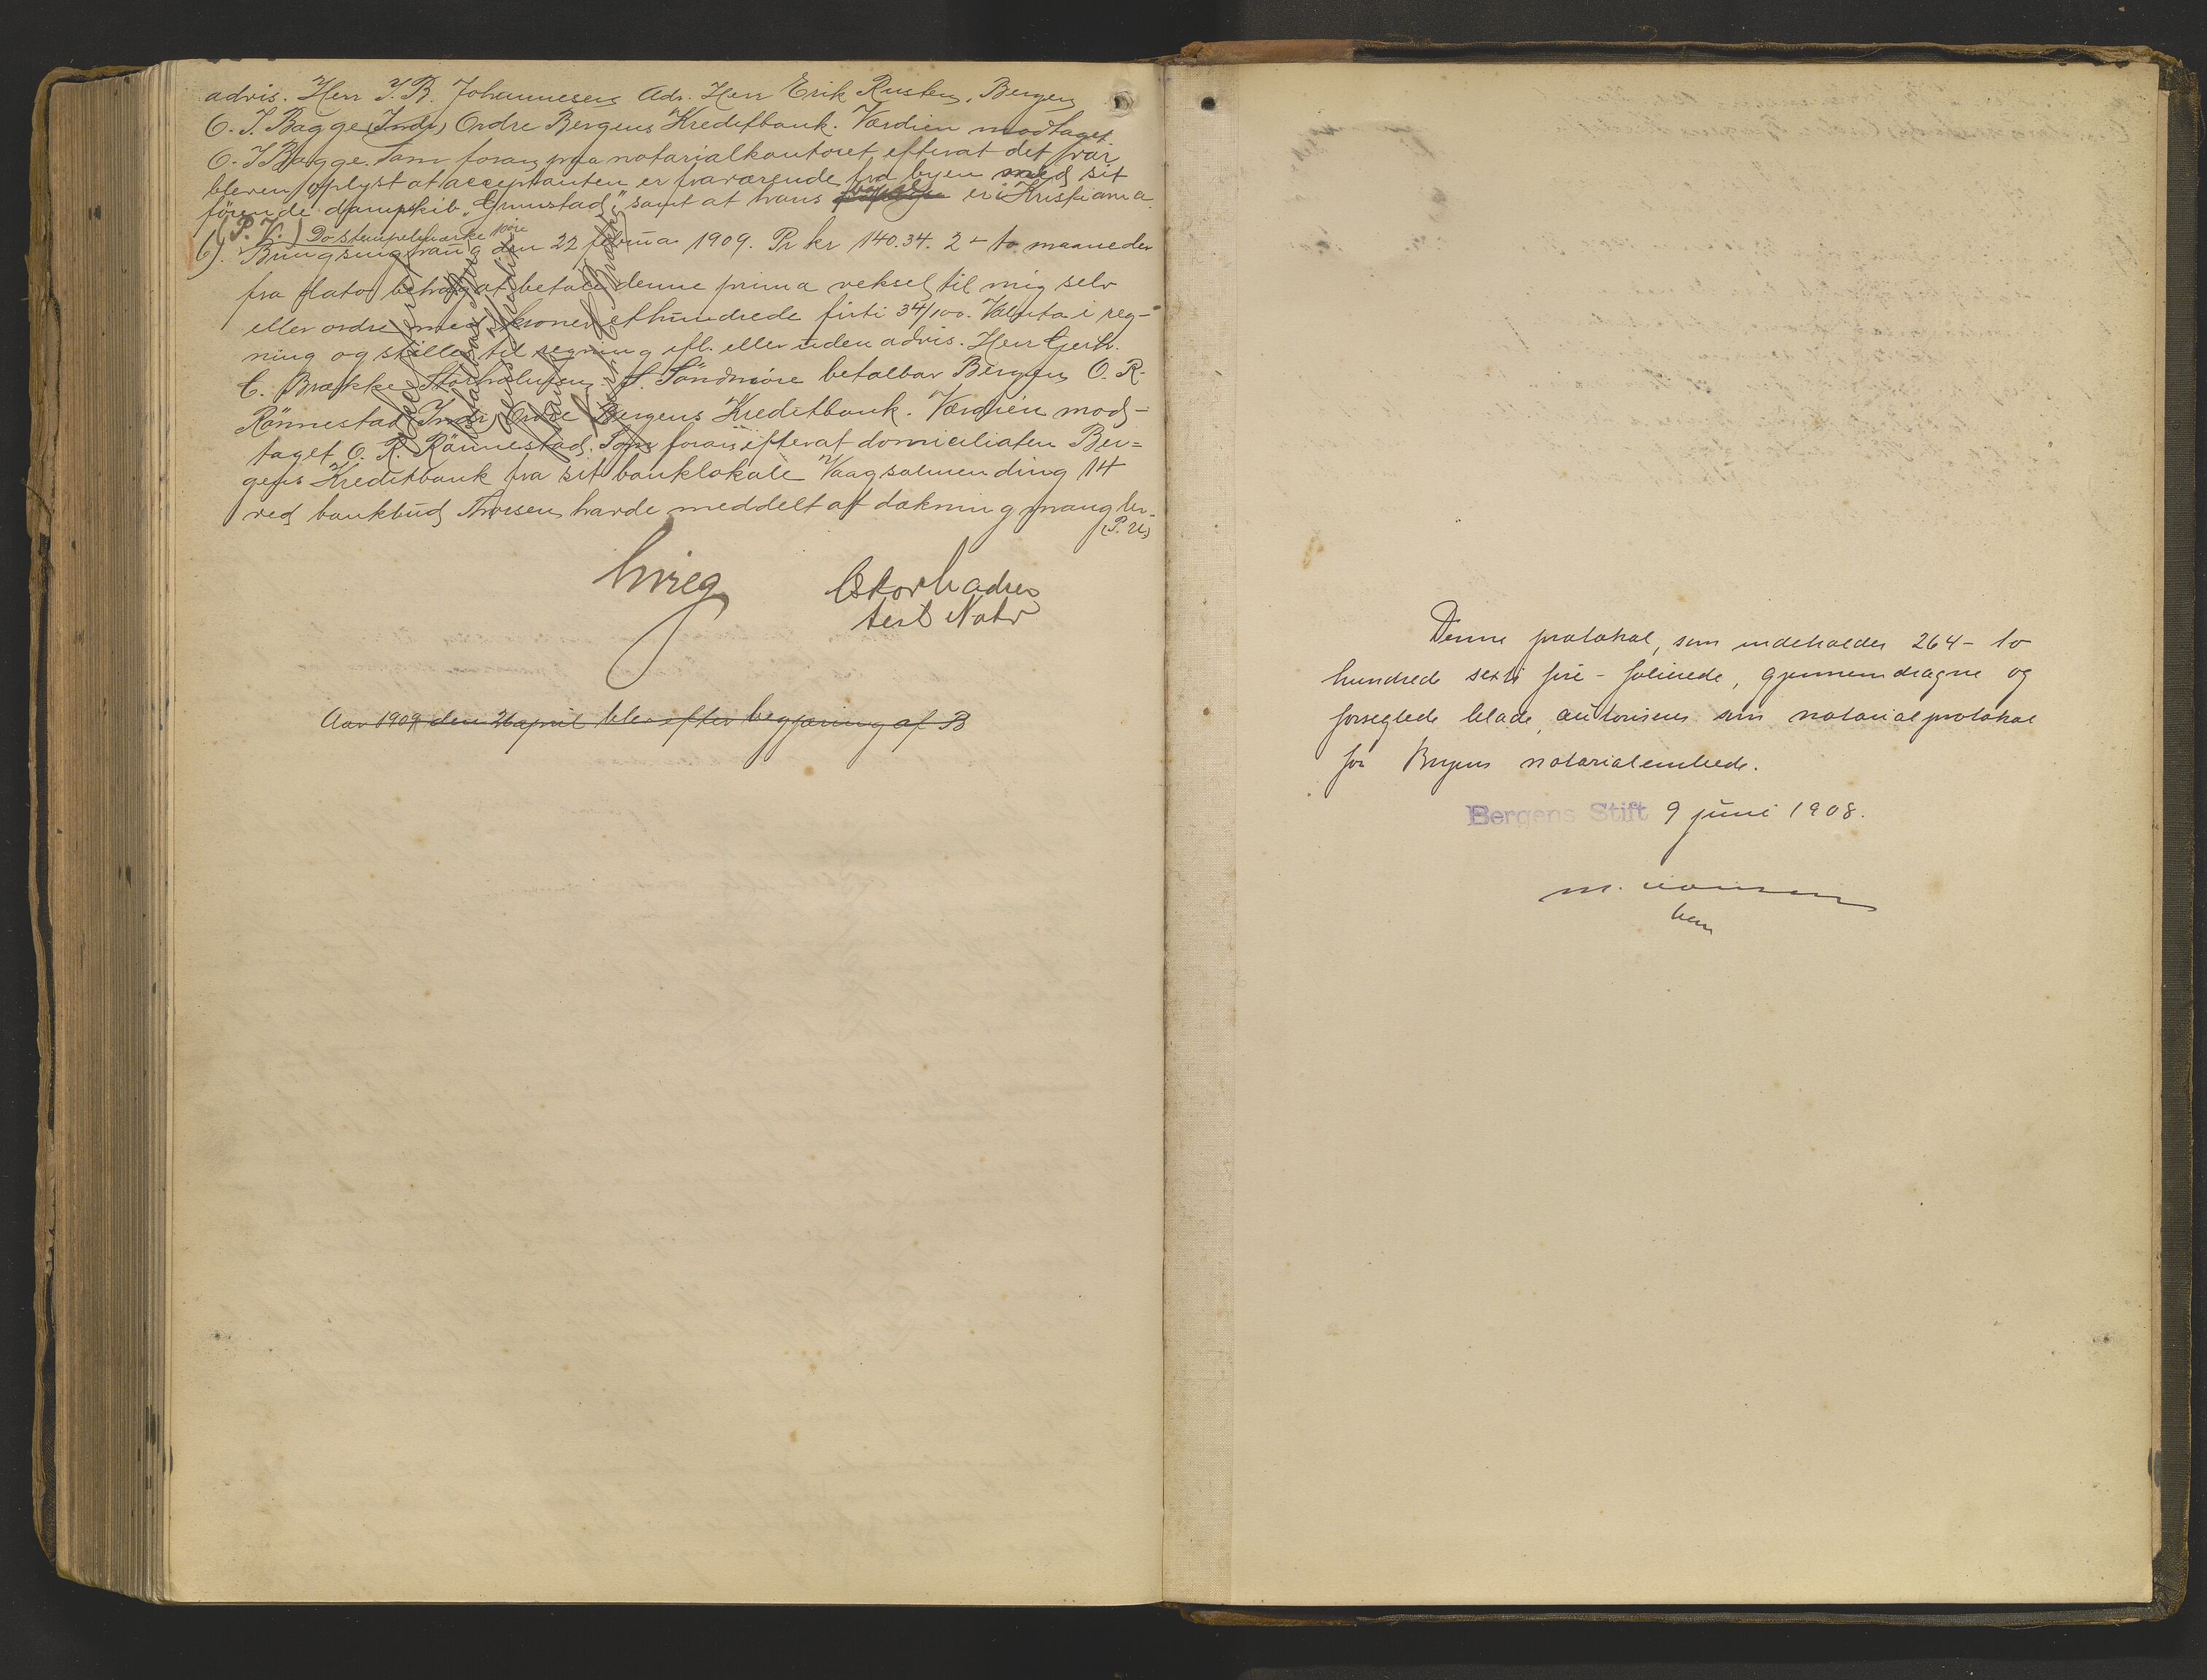 advis. Herr J. B. Johannesen Adr. Herr Erik Rusten, Bergen
O. J. Bagge (Inds) Ordre Bergens Kreditbank. Værdien modtaget
O. J Bagge. Som foran paa notarialkontoret efterat det var
bleven oplyst at acceptanten er fraværende fra byen med sit
førende dampskib „Grimstad", samt at hans er i Kristiania.
(P. V.) Do stempelmærke 10 øre
6). den 22 februar 1909. Pr kr 140.34. 2 - to maaneder
fra dato behag at betale denne prima veksel til mig selv
eller ordre med kroner ethundrede firti 34/100. Valuta i reg-
ning og stilles til regning ifl. eller uden advis. Herr Gerh.
C. Brække Storholmen S. Söndmöre betalbar Bergen O. R.
Rönnestad (Inds) Ordre Bergens Kreditbank. Værdien mod-
taget O. R. Rönnestad. Som foran efterat domiciliaten Ber-
gens Kreditbank fra sit banklokale Vaagsalmending 14
ved bankbud havde meddelt at dækning mangler.
(P. U)
test Notr
Aar 1909 den 26 april blev efter begjæring af B
Denne protokol, som indeholder 264 - to
hundrede sexti fire - folierede, gjennemdragne og
forseglede blade, autoriseres som notarialprotokol
for Bergens notarialembede.
Bergens Stift 9 juni 1908.